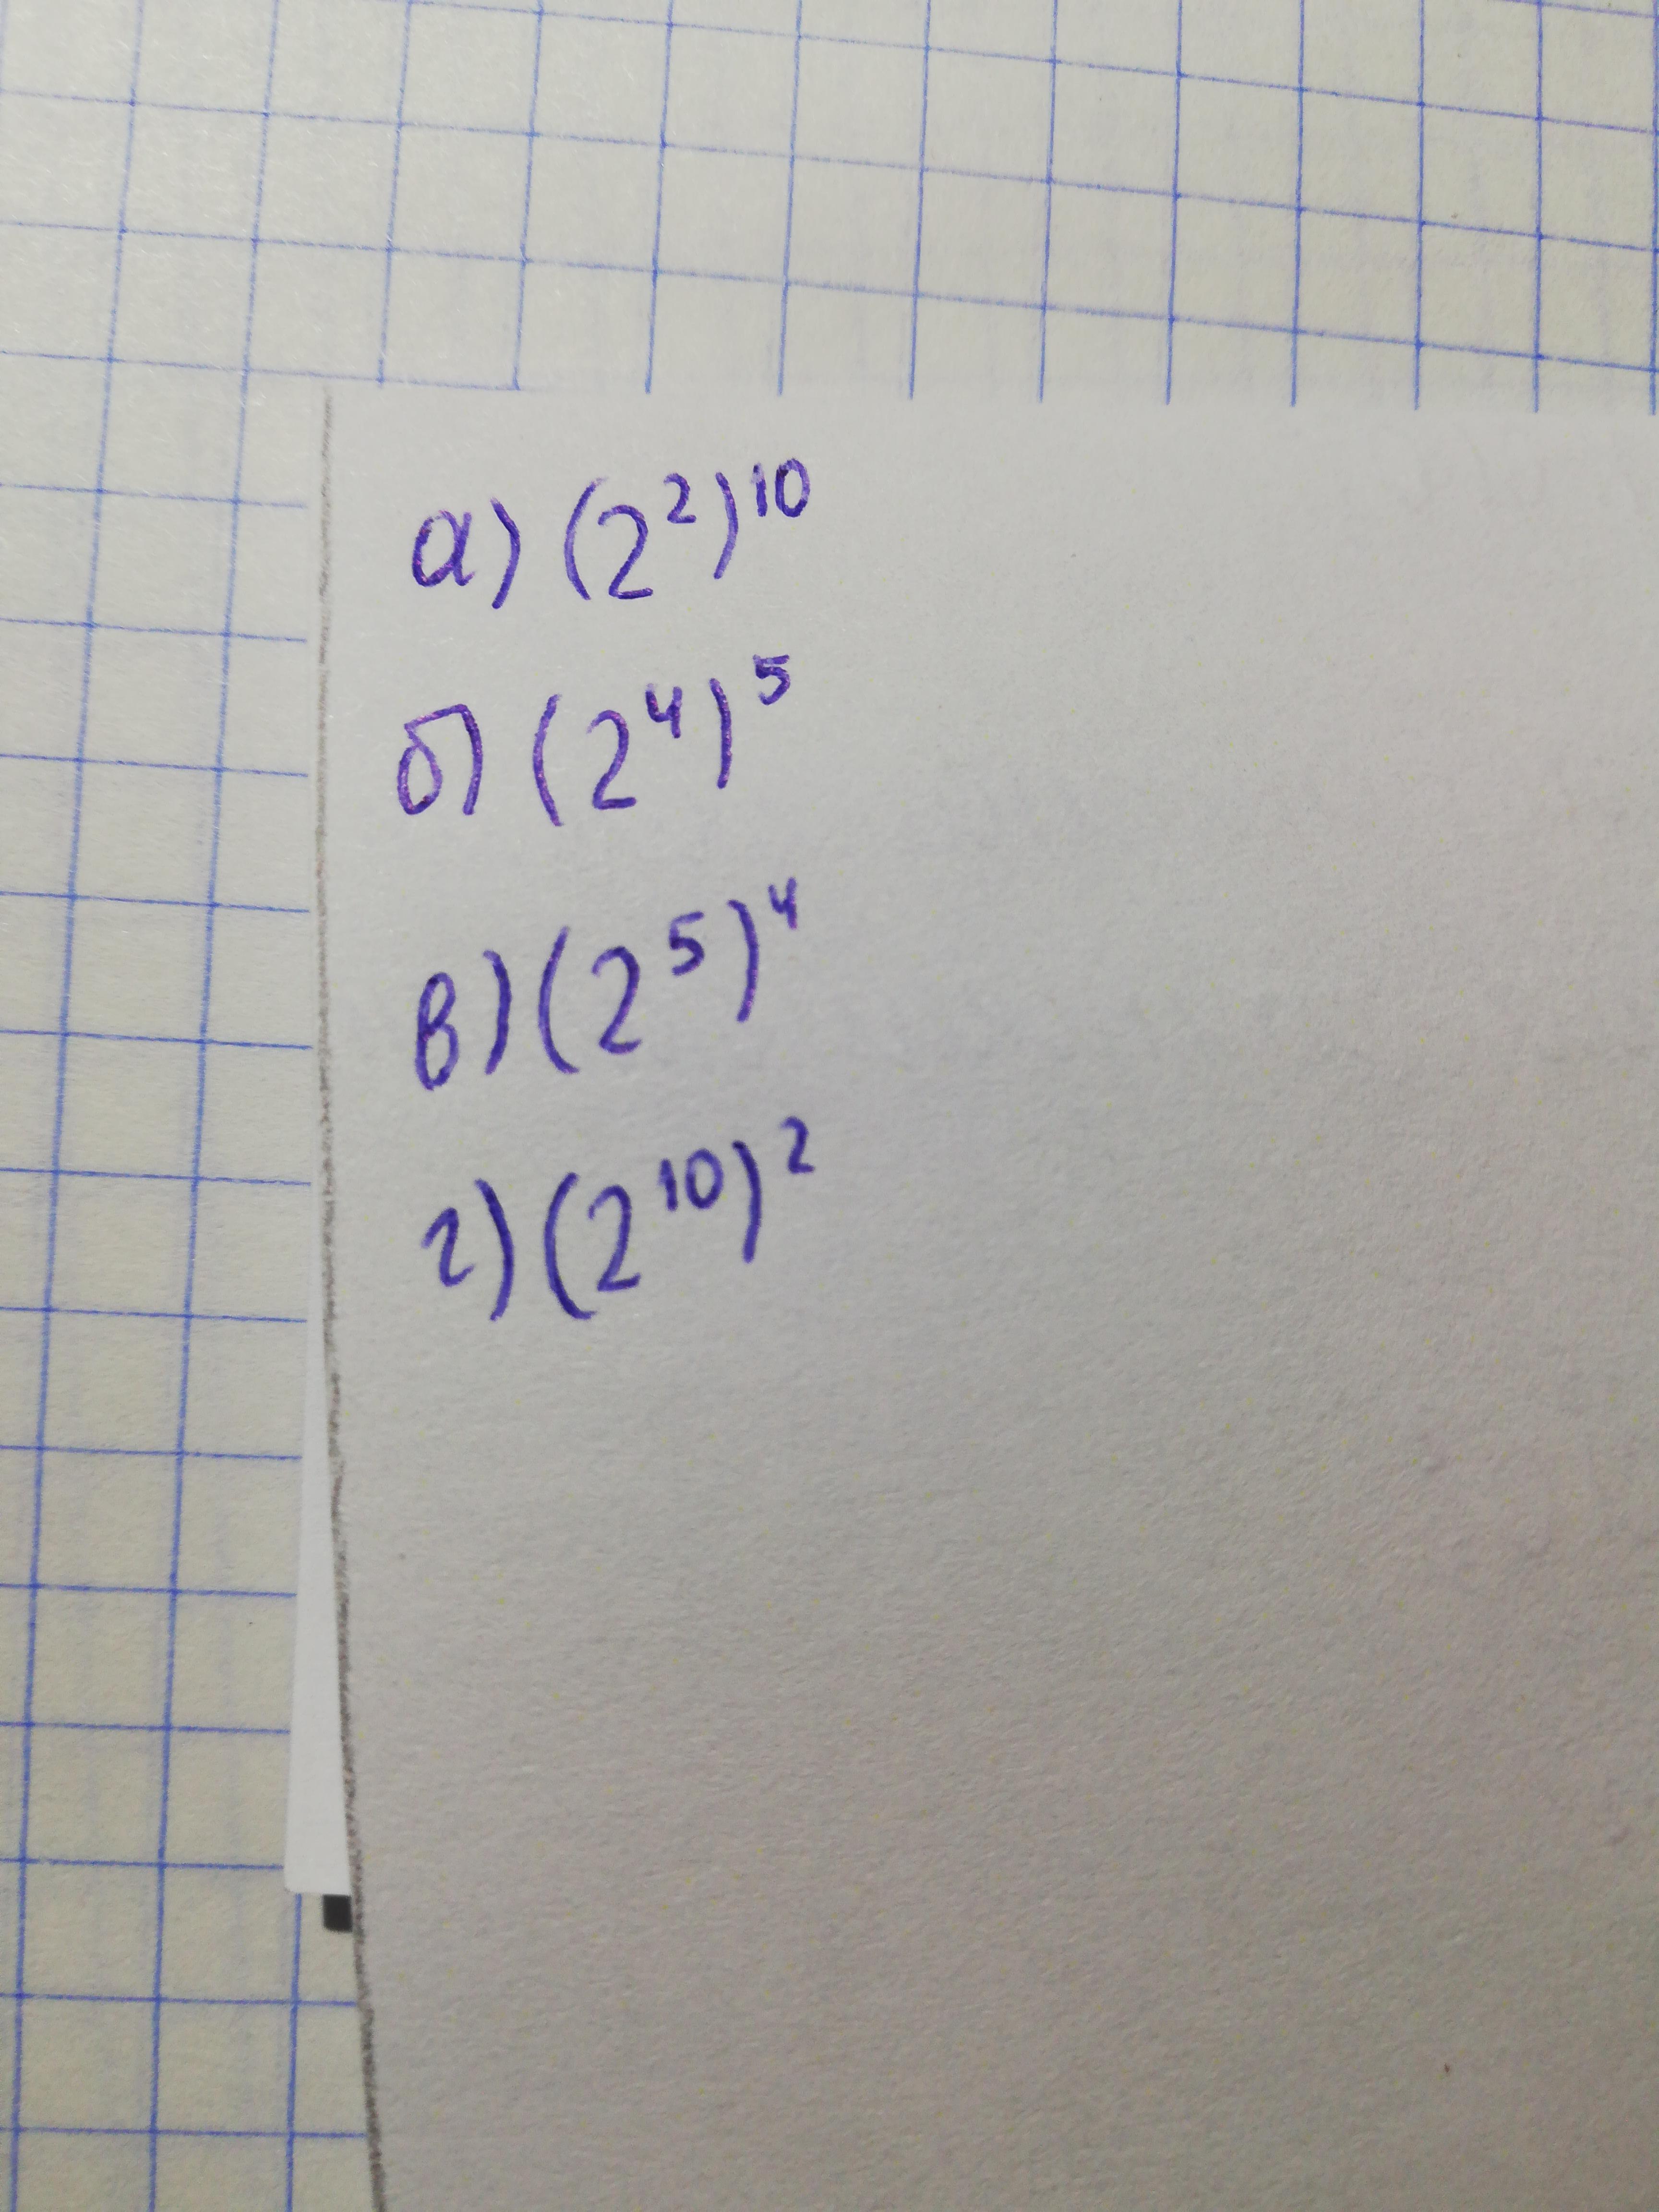 а) (2²)¹⁰
б) (2⁴)⁵
в) (2⁵)⁴
г) (2¹⁰)²